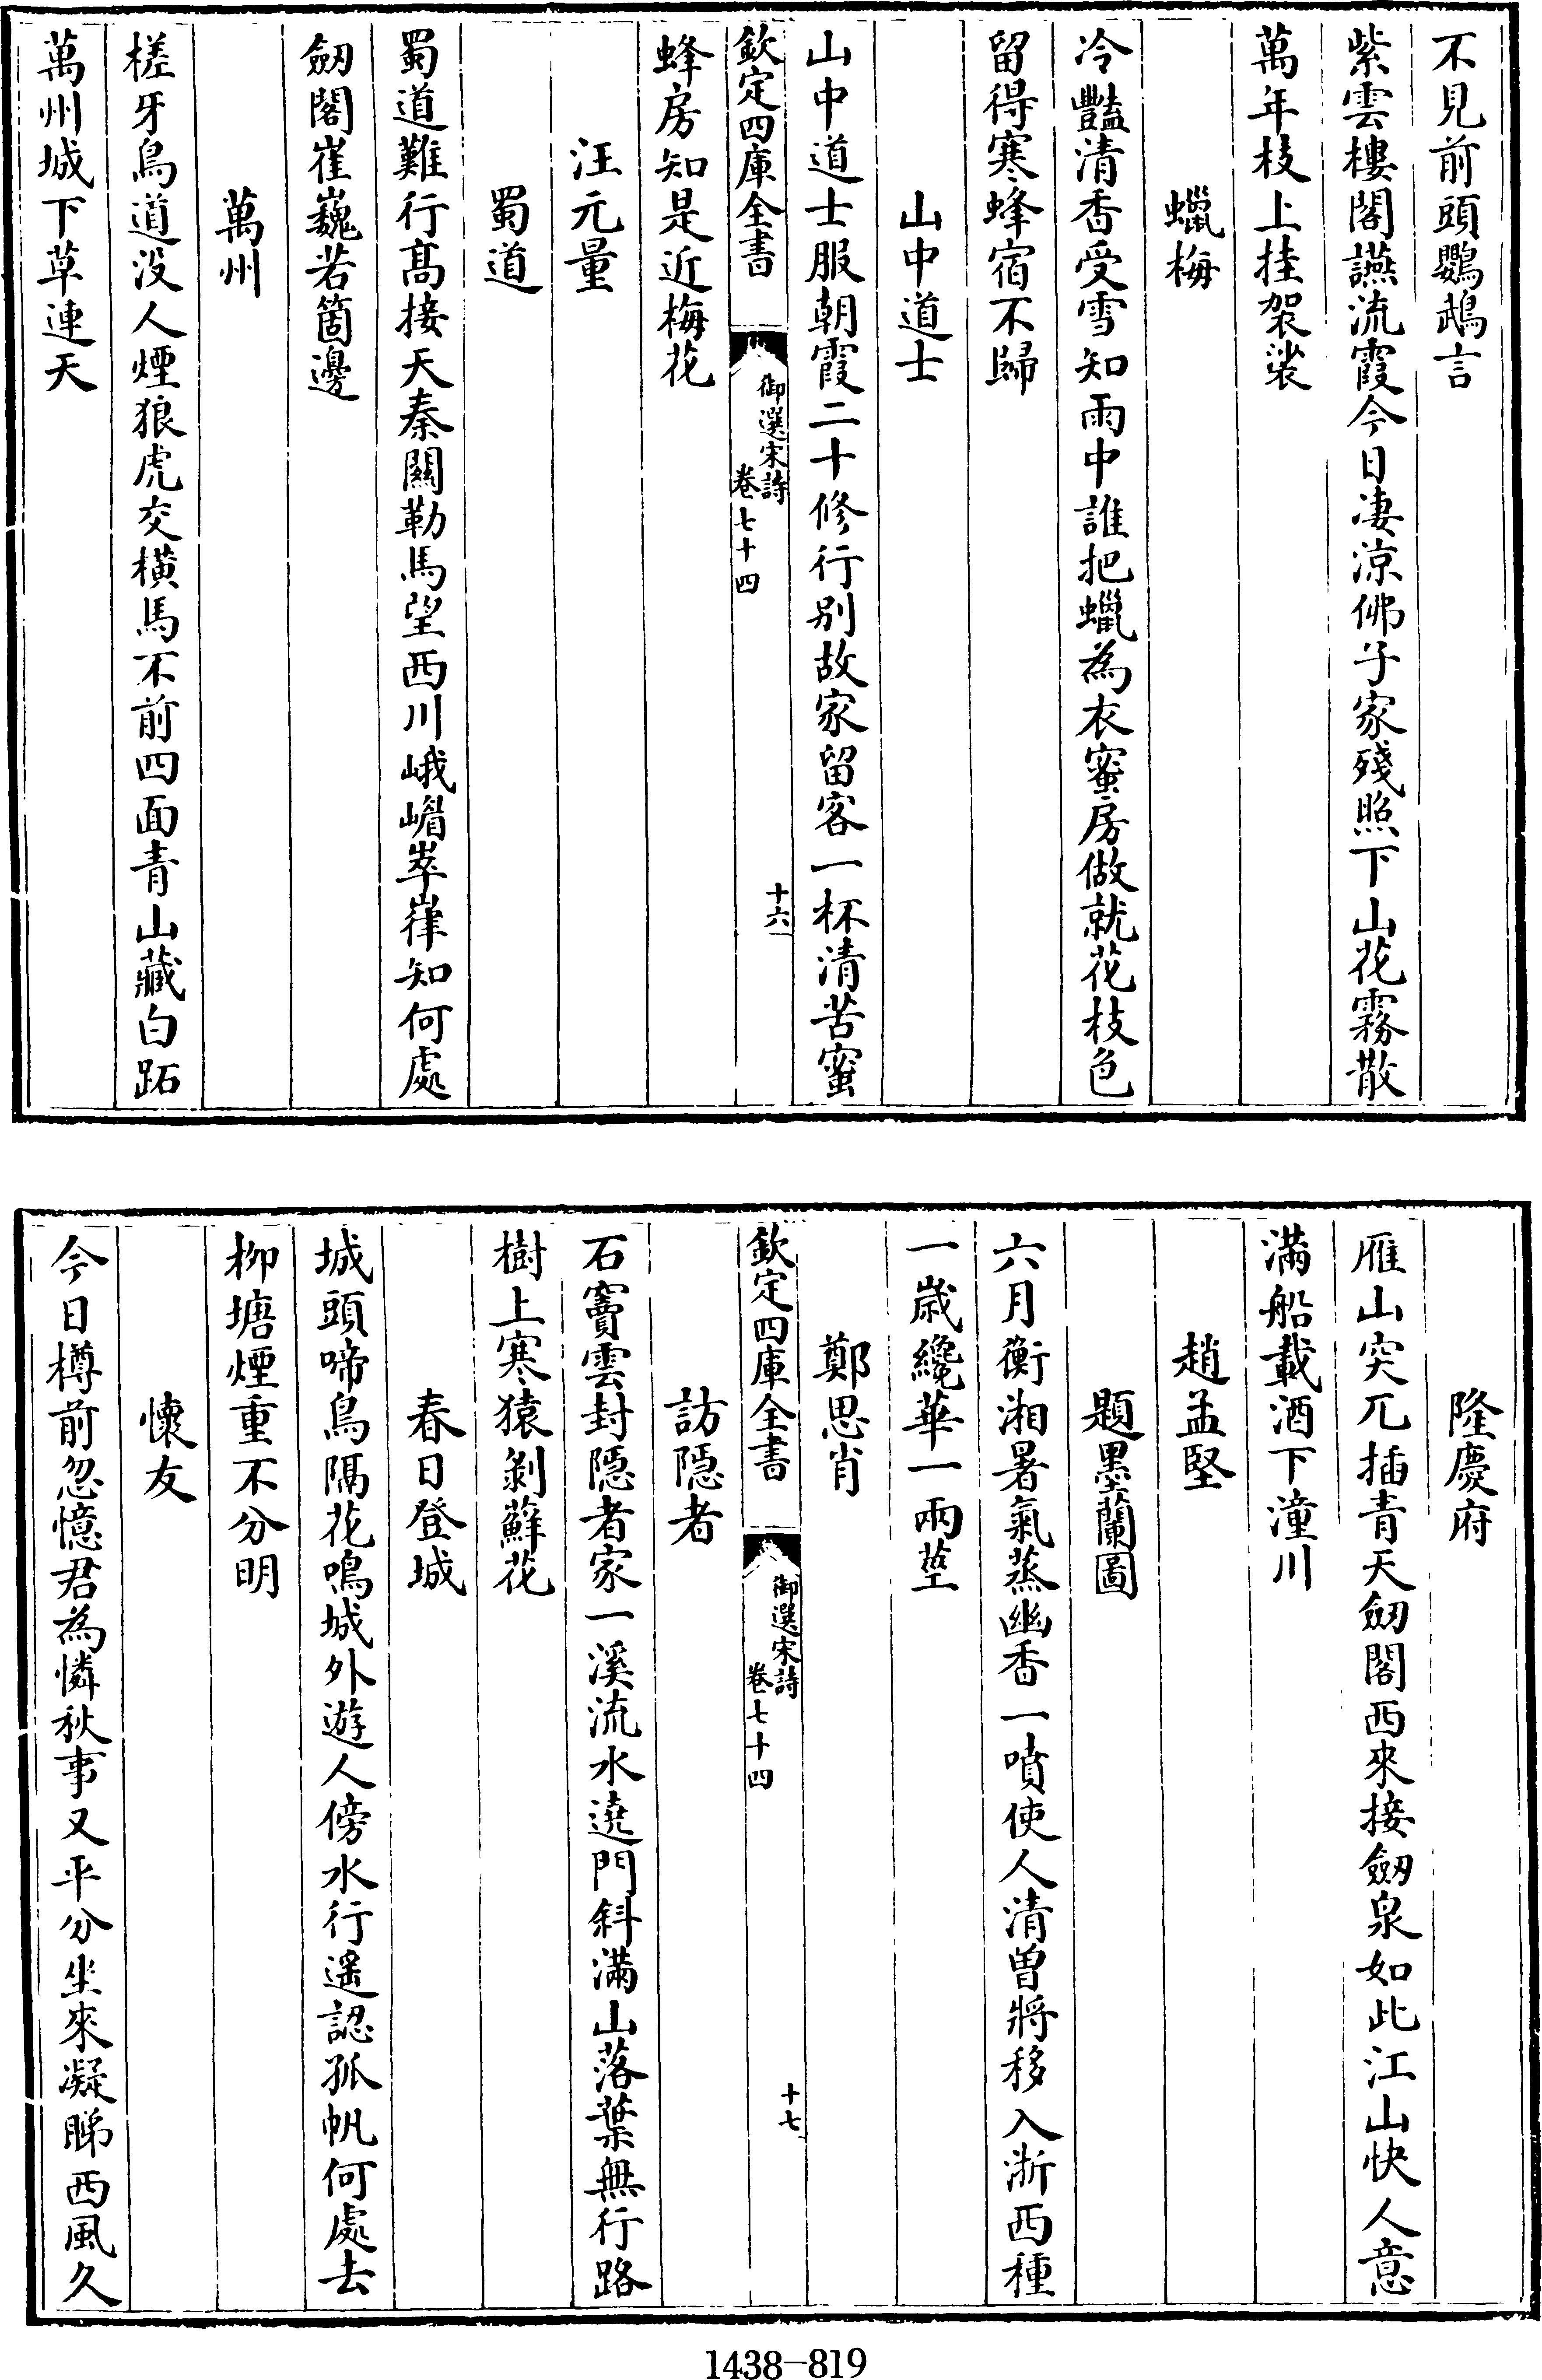 不見前頭鸚鵡言
紫雲樓閣讌流霞今日凄涼佛子家殘照下山花霧散
萬年枝上挂袈裟
蠟梅
冷豔清香受雪知雨中誰把蠟為衣蜜房做就花枝色
留得寒蜂宿不歸
山中道士
山中道士服朝霞二十修行别故家留客一杯清苦蜜
欽定四庫全書
御選宋詩
卷七十四
十六
蜂房知是近梅花
汪元量
蜀道
蜀道難行髙接天秦關勒馬望西川峨嵋崒嵂知何處
劒閣崔巍若箇邊
萬州
槎牙鳥道没人煙狼虎交横馬不前四面青山藏白跖
萬州城下草連天
隆慶府
雁山突兀插青天劒閣西來接劒泉如此江山快人意
滿船載酒下潼川
趙孟堅
題墨蘭圖
六月衡湘暑氣蒸幽香一噴使人清曽將移入浙西種
一歳纔華一兩莖
鄭思肖
欽定四庫全書
御選宋詩
卷七十四
十七
訪隠者
石竇雲封隠者家一溪流水遶門斜滿山落葉無行路
樹上寒猿剝蘚花
春日登城
城頭啼鳥隔花鳴城外遊人傍水行遥認孤帆何處去
柳塘煙重不分明
懷友
今日樽前忽憶君為憐秋事又平分坐來凝睇西風久
1438—819